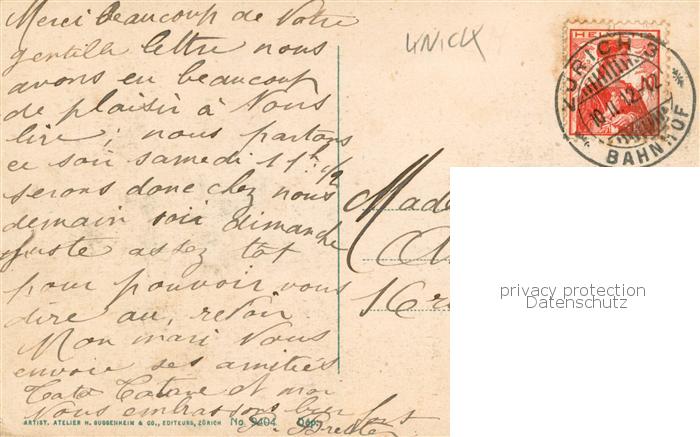 Merci beaucoup de Votre
gentille lettre nous
avons eu beaucoup
de plaisir à Vous
lire; nous partons
ce soir samedi 11 h 1/2
serons donc chez nous
demain soir dimanche
juste assez tôt
pour pouvoir vous
dire au, revoir
Mon mari Vous
envoie ses amitiés
et moi
Vous embrassons bien fort
ZÜRICH 3
10.II.12-12
BAHNHOF
HELVETIA
Made
privacy protection
Datenschutz
ARTIST. ATELIER H. GUGGENHEIM & CO., EDITEURS, ZÜRICH No. 9404 Dép.